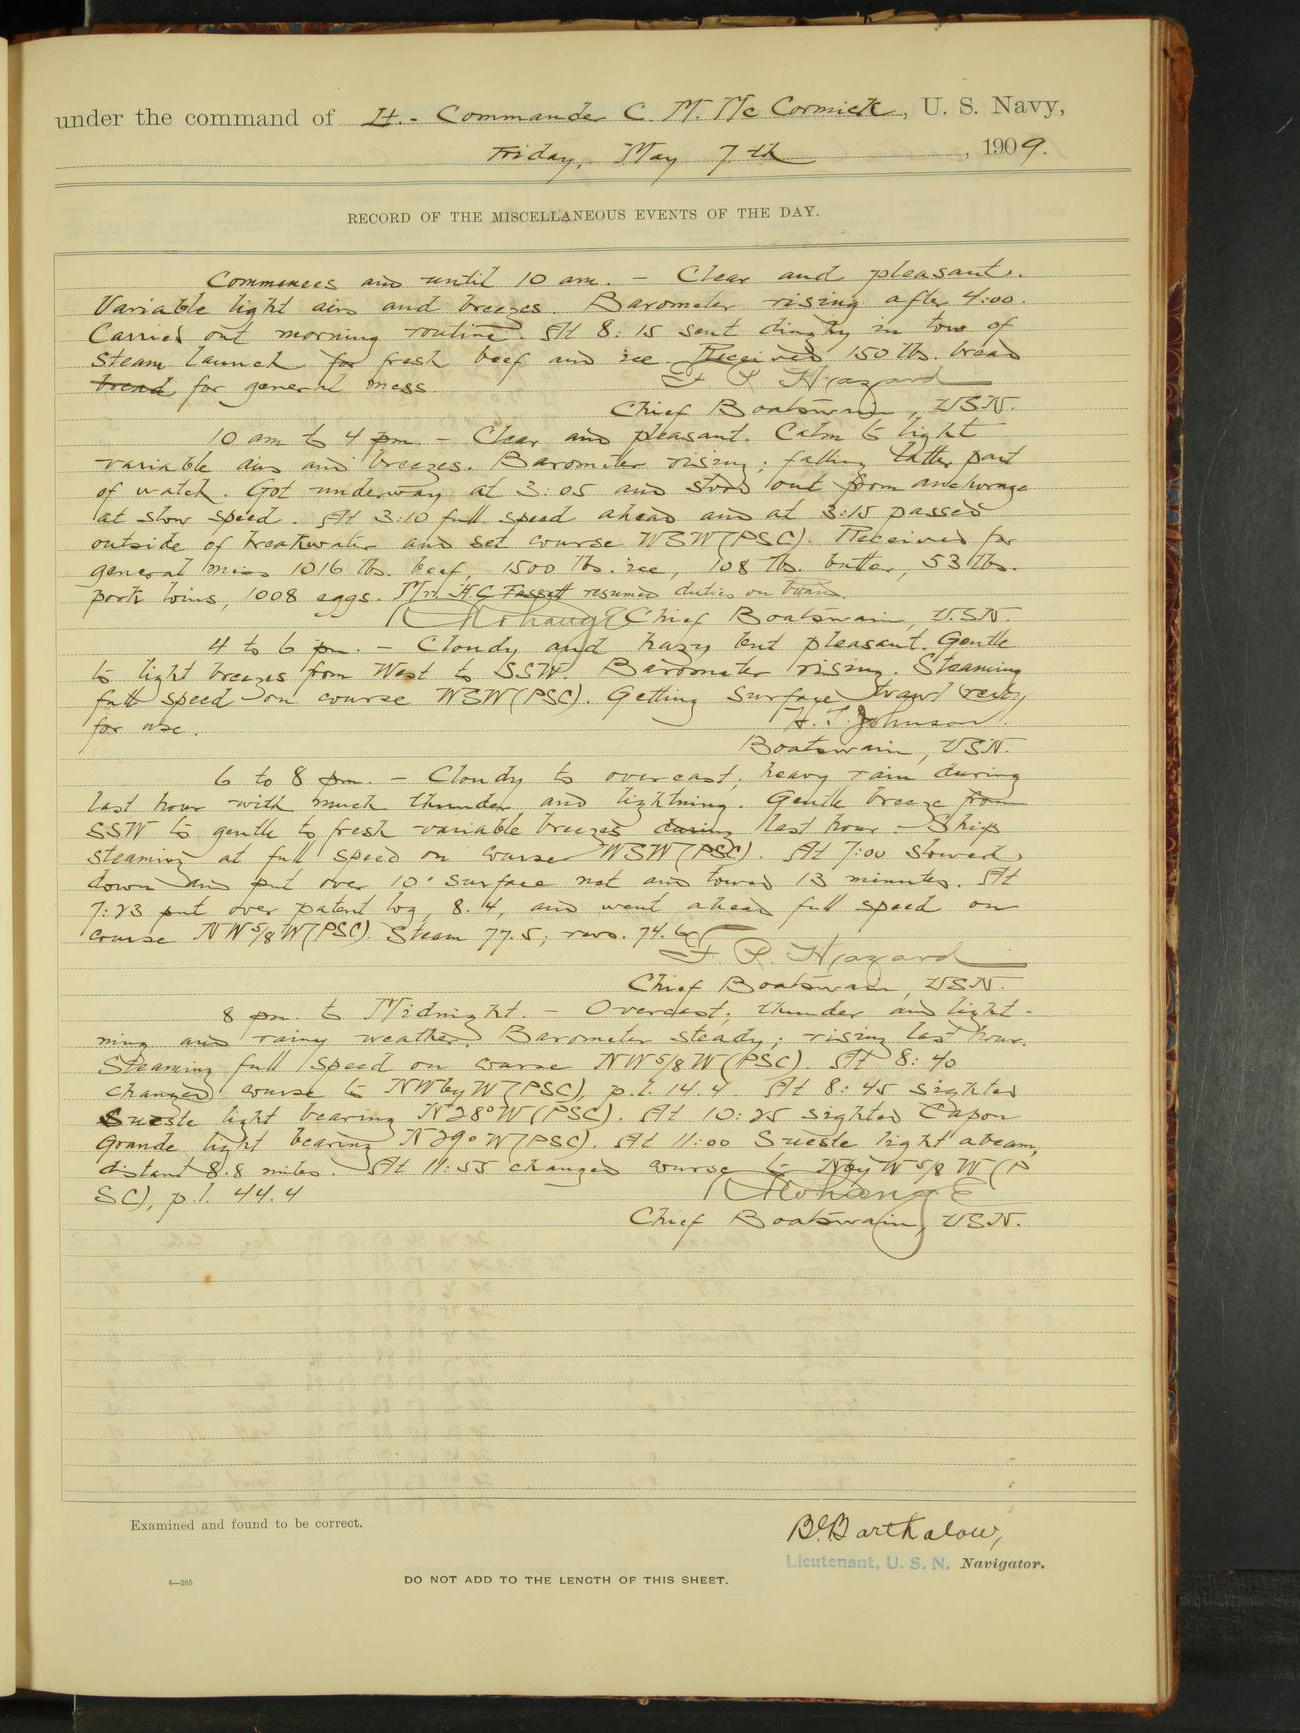 under the command of Lt.- Commander C. M. McCormick, U. S. Navy,
Friday, May 7th, 1909.
RECORD OF THE MISCELLANEOUS EVENTS OF THE DAY.
Commences and until 10 am. - Clear and pleasant.
Variable light airs and breezes. Barometer rising after 4:00.
Carried out morning routine. At 8:15 sent dinghy in tow of
steam launch for fresh beef and ice. Received 150 lbs. bread
bread for general mess.
F. R. Hazard
Chief Boatswain, USN.
10 am to 4 pm. - Clear and pleasant. Calm to light
variable airs and breezes. Barometer rising; falling latter part
of watch. Got underway at 3:05 and stood out from anchorage
at slow speed. At 3:10 full speed ahead and at 3:15 passed
outside of breakwater and set course WSW (PSC). Received for
general mess 1016 lbs. beef, 1500 lbs. ice, 108 lbs. butter, 53 lbs.
pork loins, 1008 eggs. Mr. H.C. Fassett resumed duties on board.
Chief Boatswain, U.S.N.
4 to 6 pm. - Cloudy and hazy but pleasant. Gentle
to light breezes from West to SSW. Barometer rising. Steaming
full speed on course WSW (PSC). Getting surface trawl ready
for use.
H. T. Johnson
Boatswain, USN.
6 to 8 pm. - Cloudy to overcast; heavy rain during
last hour with much thunder and lightning. Gentle breeze from
SSW to gentle to fresh variable breezes during last hour. - Ship
steaming at full speed on course WSW (PSC). At 7:00 slowed
down and put over 10' surface net and towed 13 minutes. At
7:23 put over patent log, 8.4, and went ahead full speed on
course NW 5/8 W (PSC). Steam 77.5; revs. 74.6
F. R. Hazard
Chief Boatswain, USN.
8 pm. to Midnight. - Overcast; thunder and light-
ning and rainy weather. Barometer steady; rising last hour.
Steaming full speed on course NW 5/8 W (PSC). At 8:40
changed course to NW by W (PSC), p.l. 14.4. At 8:45 sighted
Sueste light bearing N 28° W (PSC). At 10:25 sighted Capon
Grande light bearing N 29° W (PSC). At 11:00 Sueste light abeam,
distant 8.8 miles. At 11:55 changed course to N by W 5/8 W (P
SC), p.l. 44.4
Chief Boatswain, USN.
Examined and found to be correct.
Barthalow,
Lieutenant, U. S. N. Navigator.
4—265
DO NOT ADD TO THE LENGTH OF THIS SHEET.